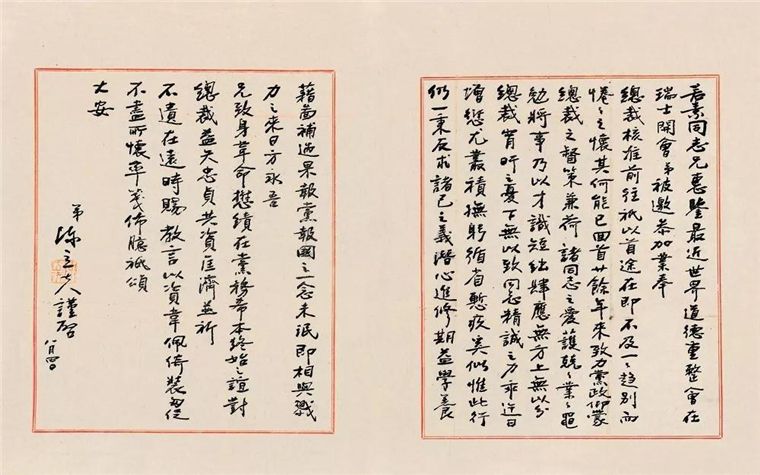 素同志兄惠鑒最近世界道德重整會在
瑞士開會弟被邀參加業奉
總裁核准前往祇以首途在即不及一一趨別而
惓惓之懷其何能已回首廿餘年來致力黨政仰蒙
總裁之督策兼荷諸同志之愛護兢兢業業黽
勉將事乃以才識短絀肆應無方上無以分
總裁宵旰之憂下無以致同志精誠之力乖迕日
增愆尤叢積撫躬循省慙疚奚似惟此行
仍一秉反求諸己之義潛心進修期益學養
藉啚補過果報黨報國之一念未泯即相與戮
力之來日方永吾
兄致身革命懋績在黨務希本終始之誼對
總裁益矢忠貞共資匡濟並祈
不遺在遠時賜教言以資韋佩倚裝匆促
不盡所懷率箋佈臆祗頌
大安
弟陳立夫謹啓
八月四日